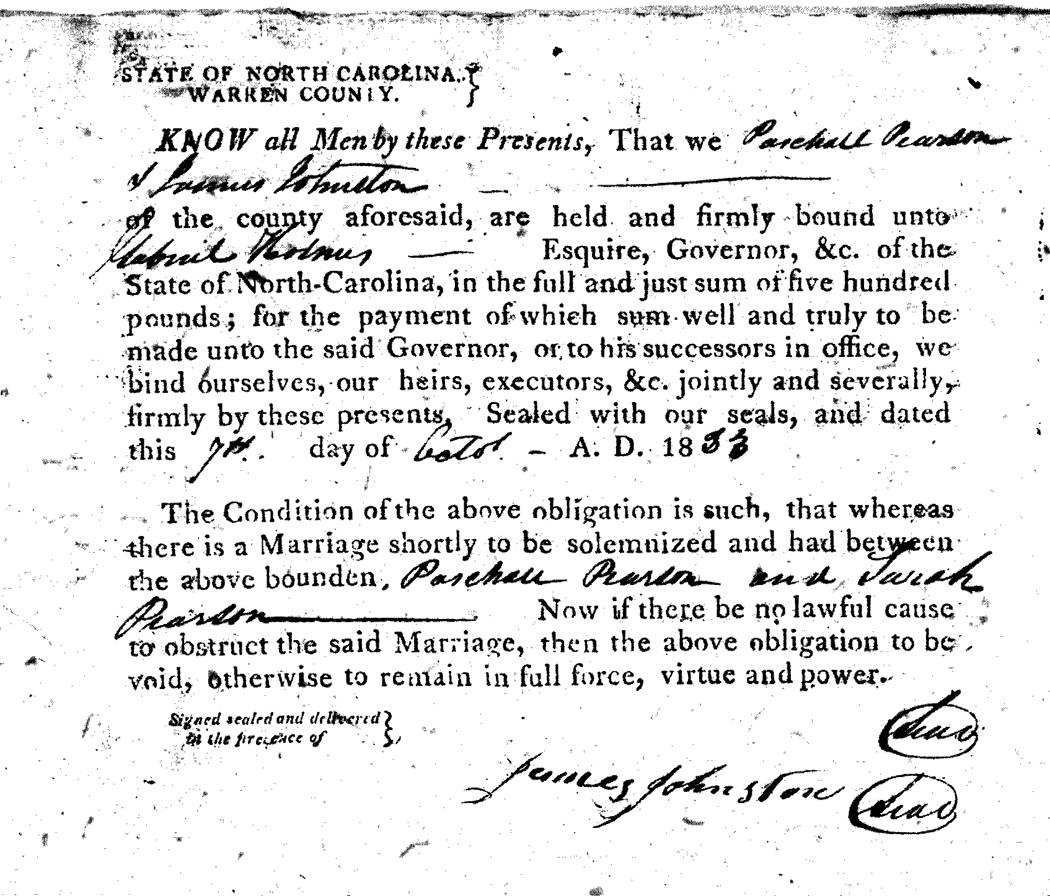 STATE OF NORTH CAROLINA. }
WARREN COUNTY.
KNOW all Men by these Presents, That we Paschall Pearson
& James Johnston
of the county aforesaid, are held and firmly bound unto
Gabriel Holmes — Esquire, Governor, &c. of the
State of North-Carolina, in the full and just sum of five hundred
pounds; for the payment of which sum well and truly to be
made unto the said Governor, or to his successors in office, we
bind ourselves, our heirs, executors, &c. jointly and severally,
firmly by these presents, Sealed with our seals, and dated
this 7th. day of Octor. – A. D. 1833
The Condition of the above obligation is such, that whereas
there is a Marriage shortly to be solemnized and had between
the above bounden, Paschall Pearson and Sarah
Pearson — Now if there be no lawful cause
to obstruct the said Marriage, then the above obligation to be
void, otherwise to remain in full force, virtue and power.
Signed sealed and delivered }
in the presence of
Seal
James Johnston Seal